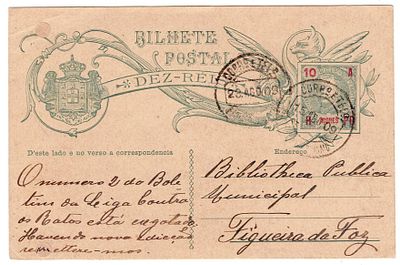 BILHETE
POSTAL
DEZ-REIS
CORRo E TELo
23 AGO 09
CORRo E TELo
09
10 A
AÇORES
H PD
D'este lado e no verso a correspondencia
Endereço
O numero 2 do Bole
tim da Leiga Contra
os Ratos está exgotado.
Havendo nova edição
remetter-mos.
Bibliotheca Publica
Municipal
Figueira da Foz